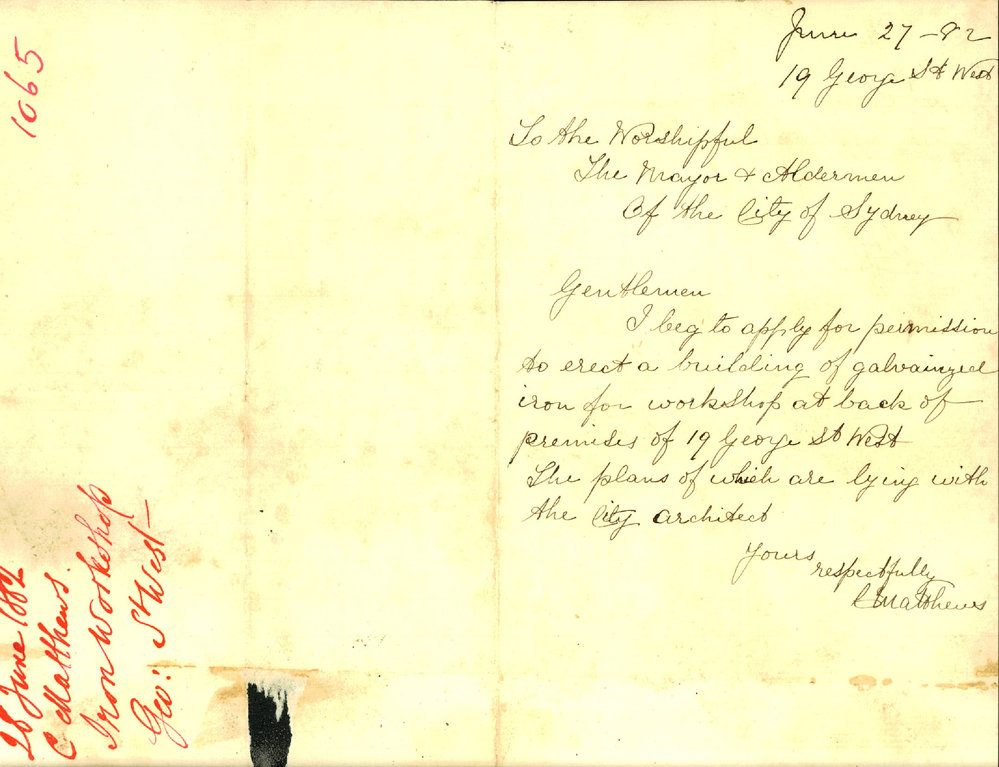 1065
28 June 1882
C Matthews.
Iron Workshop
Geo: St West
June 27 - 82
19 George St West
To the Worshipful
The Mayor & Aldermen
Of the City of Sydney
Gentlemen
I beg to apply for permission
to erect a building of galvainzed
iron for workshop at back of
premises of 19 George St West
The plans of which are lying with
the City architect
Yours
respectfully
C Matthews